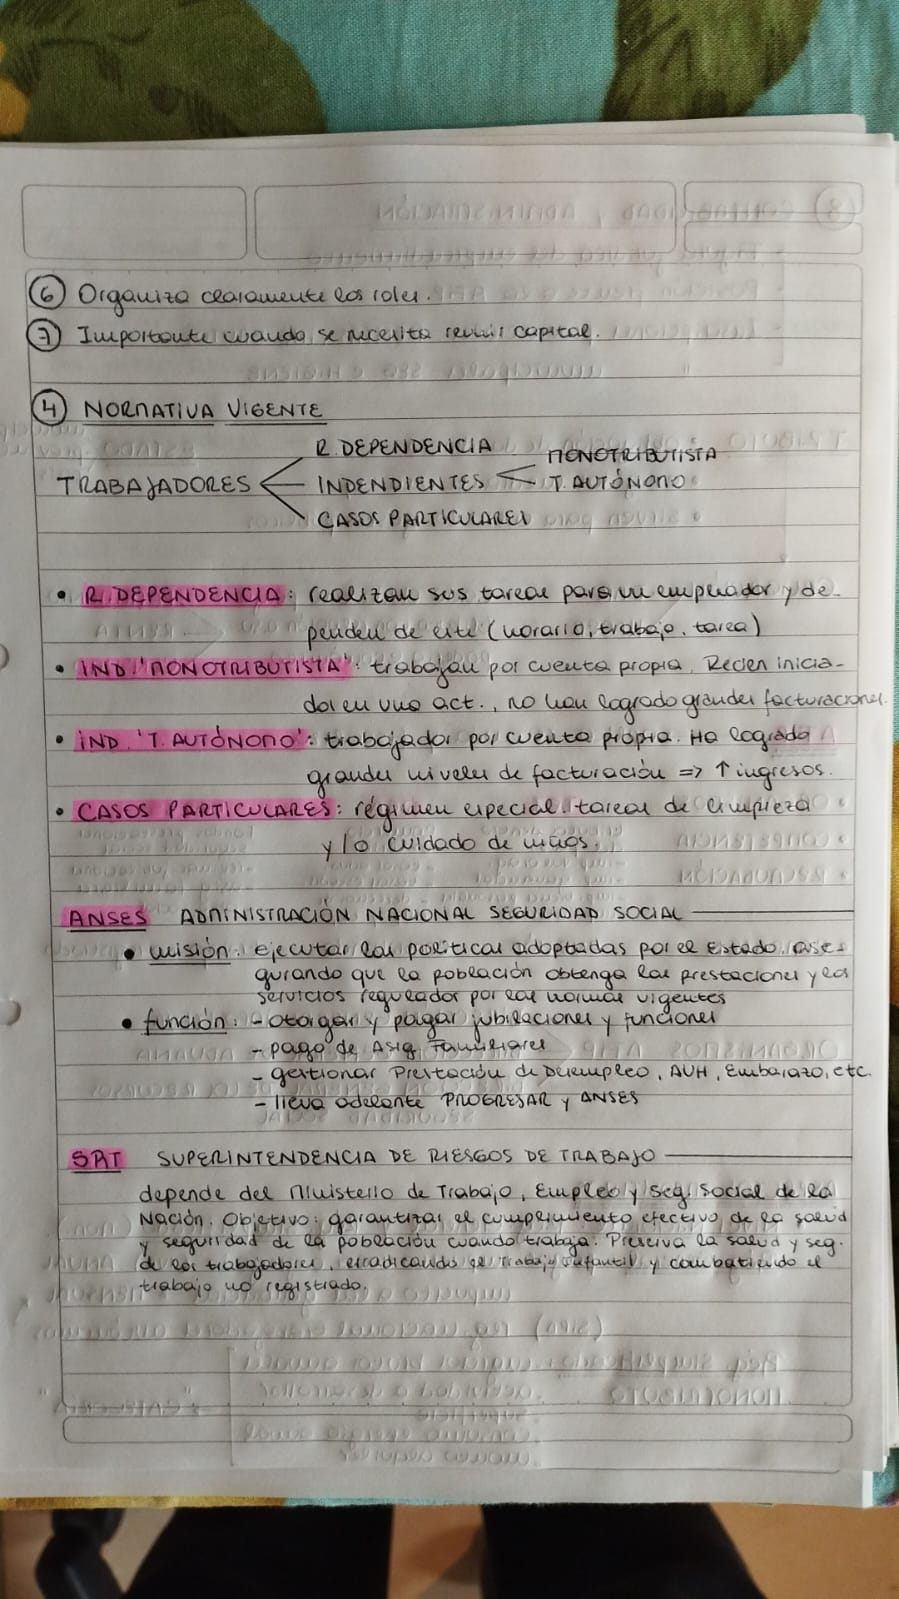 6 Organiza claramente los roles.
7 Importante cuando se necesita reunir capital.
4 NORMATIVA VIGENTE
TRABAJADORES
R. DEPENDENCIA
INDENDIENTES
MONOTRIBUTISTA
T. AUTÓNOMO
CASOS PARTICULARES
• R. DEPENDENCIA: realizan sus tareas para un empleador y de-
penden de este (horario, trabajo, tarea)
• IND. "MONOTRIBUTISTA": trabajan por cuenta propia. Recien inicia-
dos en una act., no han logrado grandes facturaciones.
• IND. 'T. AUTÓNOMO': trabajador por cuenta propia. Ha logrado
grandes niveles de facturación => ↑ ingresos.
• CASOS PARTICULARES: régimen especial. tareas de limpieza
y/o cuidado de niños.
ANSES ADMINISTRACIÓN NACIONAL SEGURIDAD SOCIAL
• misión: ejecutar las políticas adoptadas por el Estado, ase-
gurando que la población obtenga las prestaciones y los
servicios regulados por las normas vigentes
• función: - otorgar y pagar jubilaciones y funciones
- pago de Asig. Familiares
- gestionar Prestación de Desempleo, AUH, Embarazo, etc.
- lleva adelante PROGRESAR y ANSES
SRT SUPERINTENDENCIA DE RIESGOS DE TRABAJO
depende del Ministerio de Trabajo, Empleo y Seg. Social de la
Nación. Objetivo: garantizar el cumplimiento efectivo de la salud
y seguridad de la población cuando trabaja. Preserva la salud y seg.
de los trabajadores, erradicando el Trabajo Infantil y combatiendo el
trabajo no registrado.